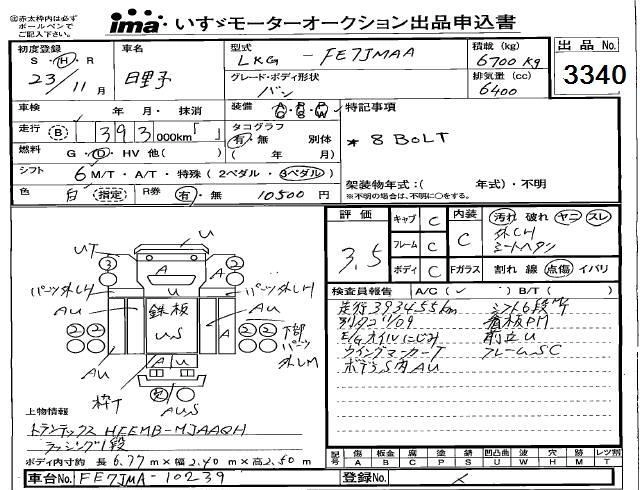 ㊟赤太枠内は必ず
ボールペンで
ご記入下さい。
ima・いすゞモーターオークション出品申込書
初度登録
S・H・R
23/11月
車名
日野
型式
LKG - FE7JMAA
グレード・ボディ形状
バン
積載(kg)
6700Kg
排気量(cc)
6400
出品No.
3340
車検
年 月・抹消
走行 B 393000km「 」
燃料 G・D・HV 他( )
シフト 6M/T・A/T・特殊(2ペダル・3ペダル)
色 白 (指定) R券 有・無 10500円
装備 A・R・P
G・B・W
タコグラフ
有・無 別体
( 年 月)
特記事項
* 8 BOLT
架装物年式:( 年式)・不明
※不明の場合は、不明に○をする。
評価
3.5
キャブ C
フレーム C
ボディ C
内装
C
汚れ 破れ ヤニ スレ
外CH
シートヘタン
Fガラス 割れ 線 点傷 イバリ
検査員報告 A/C( ✓ ) B/T( )
走行393455km シフト6段M/T
別タコ'11/09 看板PM
E/Gオイルにじみ 前立U
ウイングマーカーT フレームSC
ボデラS内AU
UT
U
3
2
A
パーツ外しH
U
パーツ外しH
AU
鉄板
US
A
AU
2 2
2 2
下部
パーツ
外しM
AU
A U
枠T
AUS
上物情報
トランテックス HEEMB-MJAAQH
ラッシング1段
ボディ内寸約 長 6.77m×幅 2.40m×高 2.50m
記号 傷 A 板金 B 腐 C 塗 P 錆 S 凹凸曲 U 波 W 穴 H 跡 M レツ割 T
車台No. FE7JMA-10239
登録No.